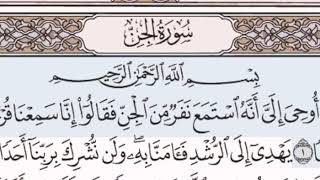 سُورَةُ الْجِنِّ
بِسْمِ اللَّهِ الرَّحْمَٰنِ الرَّحِيمِ
أُوحِىَ إِلَىَّ أَنَّهُ ٱسْتَمَعَ نَفَرٌ مِّنَ ٱلْجِنِّ فَقَالُوٓا۟ إِنَّا سَمِعْنَا
١ يَهْدِىٓ إِلَى ٱلرُّشْدِ فَـَٔامَنَّا بِهِۦ ۖ وَلَن نُّشْرِكَ بِرَبِّنَآ أَحَدًا